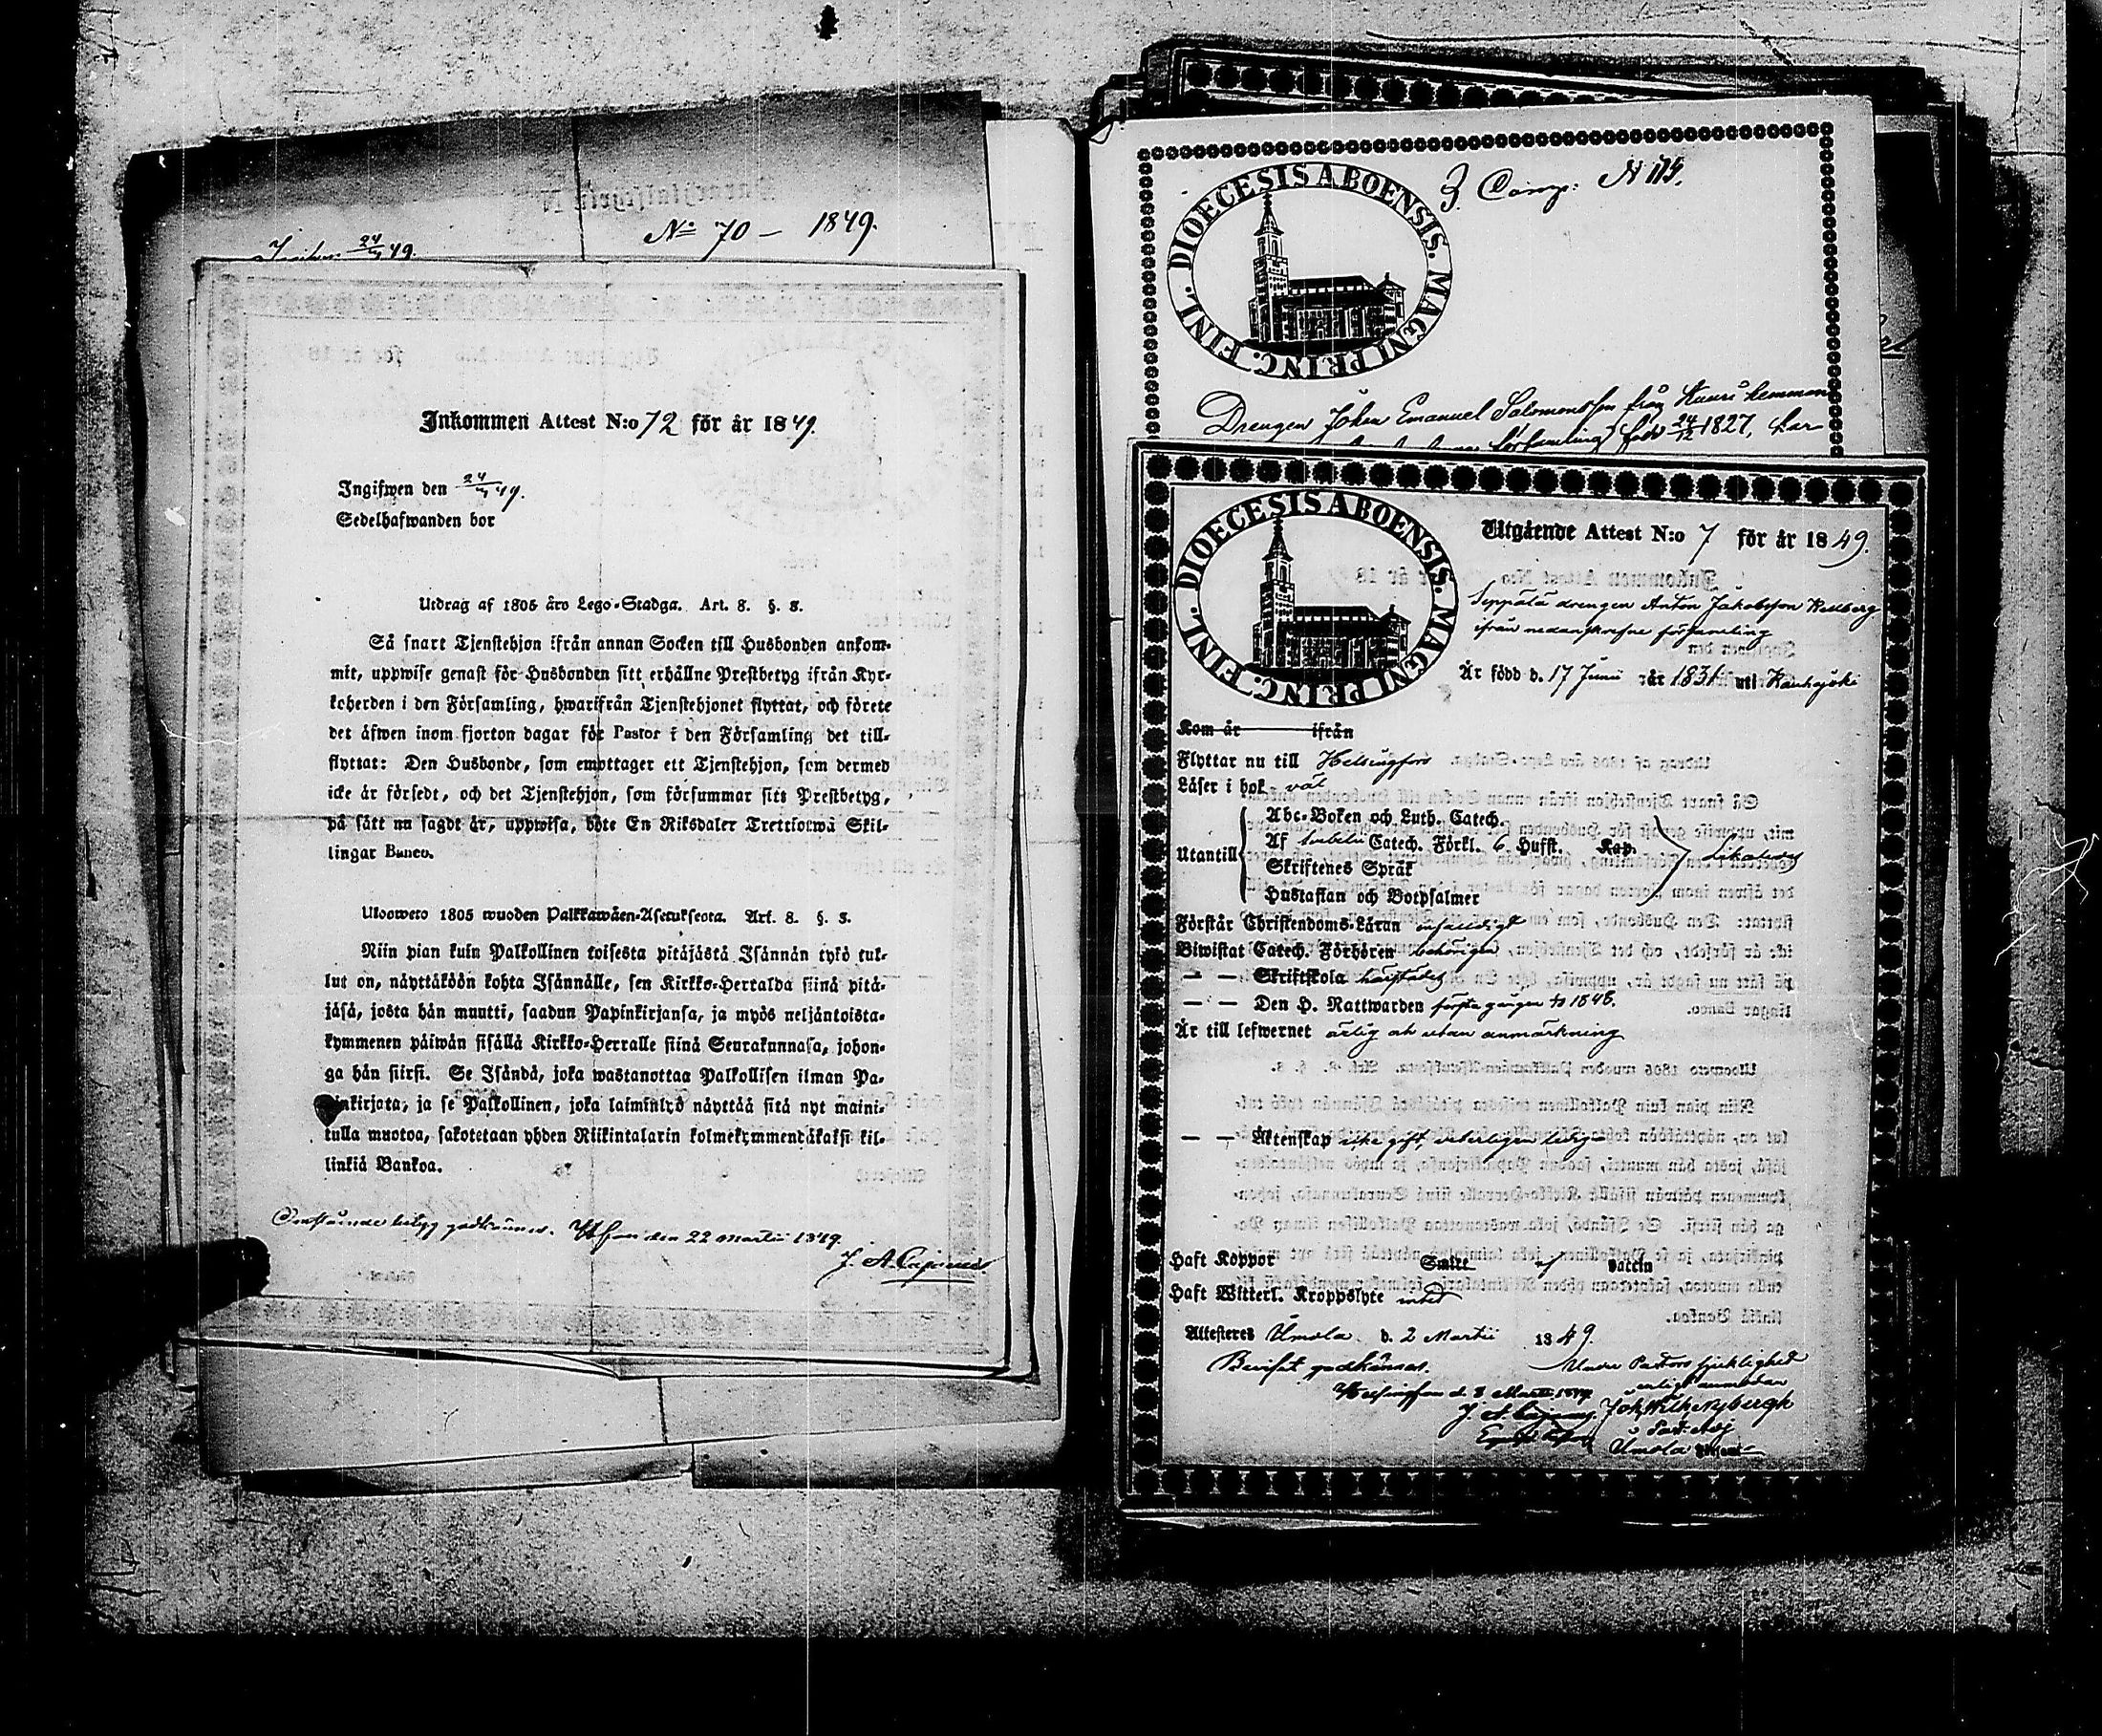 No 70 – 1849.
24/4 49.
Inkommen Attest N:o 72 för år 1849.
Ingifwen den 24/4 49.
Sedelhafwanden bor
Utdrag af 1805 års Lego-Stadga. Art. 8. §. 8.
Så snart Tjenstehjon ifrån annan Socken till Husbonden ankom-
mit, uppwise genast för Husbonden sitt erhållne Prestbetyg ifrån Kyr-
koherden i den Församling, hwarifrån Tjenstehjonet flyttat, och förete
det äfwen inom fjorton dagar för Pastor i den Församling det till-
flyttat: Den Husbonde, som emottager ett Tjenstehjon, som dermed
icke är försedt, och det Tjenstehjon, som försummar sitt Prestbetyg,
på sätt nu sagdt är, uppwisa, böte En Riksdaler Trettiotwå Skil-
lingar Banco.
Ulosweto 1805 wuoden Palkkawäen-Asetuksesta. Art. 8. §. 8.
Niin pian kuin Palkollinen toisesta pitäjästä Isännän tykö tul-
lut on, näyttäköön kohta Isännälle, sen Kirkko-Herralda siinä pitä-
jäsä, josta hän muutti, saadun Papinkirjansa, ja myös neljäntoista-
kymmenen päiwän sisällä Kirkko-Herralle siinä Seurakunnasa, johon-
ga hän siirsi. Se Isändä, joka wastanottaa Palkollisen ilman Pa-
pinkirjata, ja se Palkollinen, joka laiminlyö näyttää sitä nyt maini-
tulla muotoa, sakotetaan yhden Riikintalarin kolmekymmendäkaksi kil-
linkiä Bankoa.
Omstående betyg godkännes. H:fors den 22 Martii 1849.
J. A. Cajanus.
3. Comp: N 119.
DIOECESIS ABOENSIS. MAGNI PRINC. FINL.
Drengen Johan Emanuel Salomonsson från Kuuri hemman
församling född 24/12 1827, har
DIOECESIS ABOENSIS. MAGNI PRINC. FINL.
Utgående Attest N:o 7 för år 1849.
Seppälä drengen Anton Jakobsson
ifrån nedanskrefne församling
Är född d. 17 Junii år 1831 uti Kauhajoki
Kom år ifrån
Flyttar nu till Helsingfors
Läser i bok väl
Abc-Boken och Luth. Catech.
Utantill Af Catech. Förkl. 6 Hufst. Kap.
Skriftenes Språk
Hustaflan och Botpsalmer
Förstår Christendoms-Läran enfaldigt
Biwistat Catech. Förhören behörigen
— — Skriftskola härstädes
— — Den H. Nattwarden första gången 1848.
Är till lefwernet ärlig och utan anmärkning
— — Äktenskap icke gift, veterligen ledig
Haft Koppor Smitt af vaccin
Haft Witterl. Kroppslyte intet
Attesteras Umola d. 2 Martii 1849.
Beviset godkännes. Under Pastors sjuklighet
Helsingfors d. 8 Martii 1849. enligt anmodan
J. A. Cajanus.
Umola